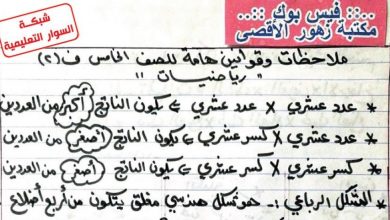 شبكة
السوار التعليمية
::.. فيس بوك ..::
مكتبة زهور الأقصى
ملاحظات وقوانين هامة للصف الخامس ف (٢)
"رياضيات"
* عدد عشري X عدد عشري ⇐ يكون الناتج أكبر من العددين
* عدد عشري X كسر عشري ⇐ يكون الناتج أصغر من العددين
* كسر عشري X كسر عشري ⇐ يكون الناتج أصغر من العددين
* الشكل الرباعي :- هو شكل هندسي مغلق يتكون من أربع أضلاع